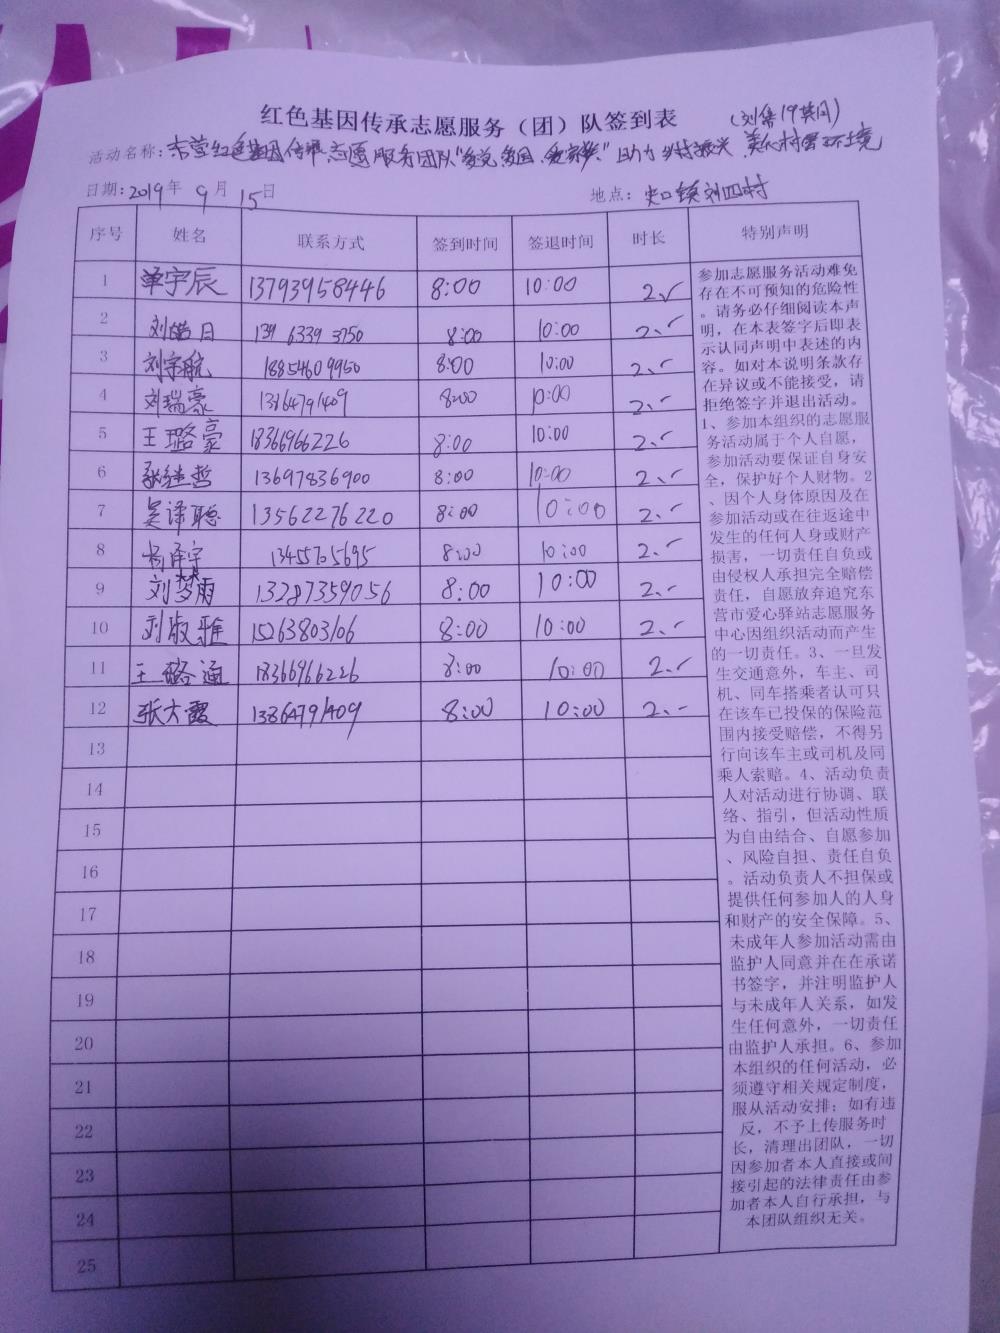 红色基因传承志愿服务（团）队签到表 （刘集19其月）
活动名称：东营红色基因传承志愿服务团队“爱党、爱国、爱家乡”助力乡村振兴、美化村居环境
日期：2019年9月15日 地点：史口镇刘四村
序号 姓名 联系方式 签到时间 签退时间 时长 特别声明
1 单宇辰 13793958446 8:00 10:00 2.
2 刘皓日 139 6339 3750 8:00 10:00 2.
3 刘宇航 18854609950 8:00 10:00 2.
4 刘瑞豪 13864791409 8:00 10:00 2.
5 王璐豪 18366966226 8:00 10:00 2.
6 张继哲 13697836900 8:00 10:00 2.
7 吴译聪 13562276220 8:00 10:00 2.
8 杨泽宇 13455705695 8:00 10:00 2.
9 刘梦雨 13287359056 8:00 10:00 2.
10 刘淑雅 15263803106 8:00 10:00 2.
11 王璐通 18366966226 8:00 10:00 2.
12 张大霞 13864791409 8:00 10:00 2.
13
14
15
16
17
18
19
20
21
22
23
24
25
参加志愿服务活动难免
存在不可预知的危险性
。请务必仔细阅读本声
明，在本表签字后即表
示认同声明中表述的内
容。如对本说明条款存
在异议或不能接受，请
拒绝签字并退出活动。
1、参加本组织的志愿服
务活动属于个人自愿，
参加活动要保证自身安
全，保护好个人财物。2
、因个人身体原因及在
参加活动或在往返途中
发生的任何人身或财产
损害，一切责任自负或
由侵权人承担完全赔偿
责任，自愿放弃追究东
营市爱心驿站志愿服务
中心因组织活动而产生
的一切责任。3、一旦发
生交通意外，车主、司
机、同车搭乘者认可只
在该车已投保的保险范
围内接受赔偿，不得另
行向该车主或司机及同
乘人索赔。4、活动负责
人对活动进行协调、联
络、指引，但活动性质
为自由结合、自愿参加
、风险自担、责任自负
。活动负责人不担保或
提供任何参加人的人身
和财产的安全保障。5、
未成年人参加活动需由
监护人同意并在在承诺
书签字，并注明监护人
与未成年人关系，如发
生任何意外，一切责任
由监护人承担。6、参加
本组织的任何活动，必
须遵守相关规定制度，
服从活动安排；如有违
反，不予上传服务时
长，清理出团队，一切
因参加者本人直接或间
接引起的法律责任由参
加者本人自行承担，与
本团队组织无关。